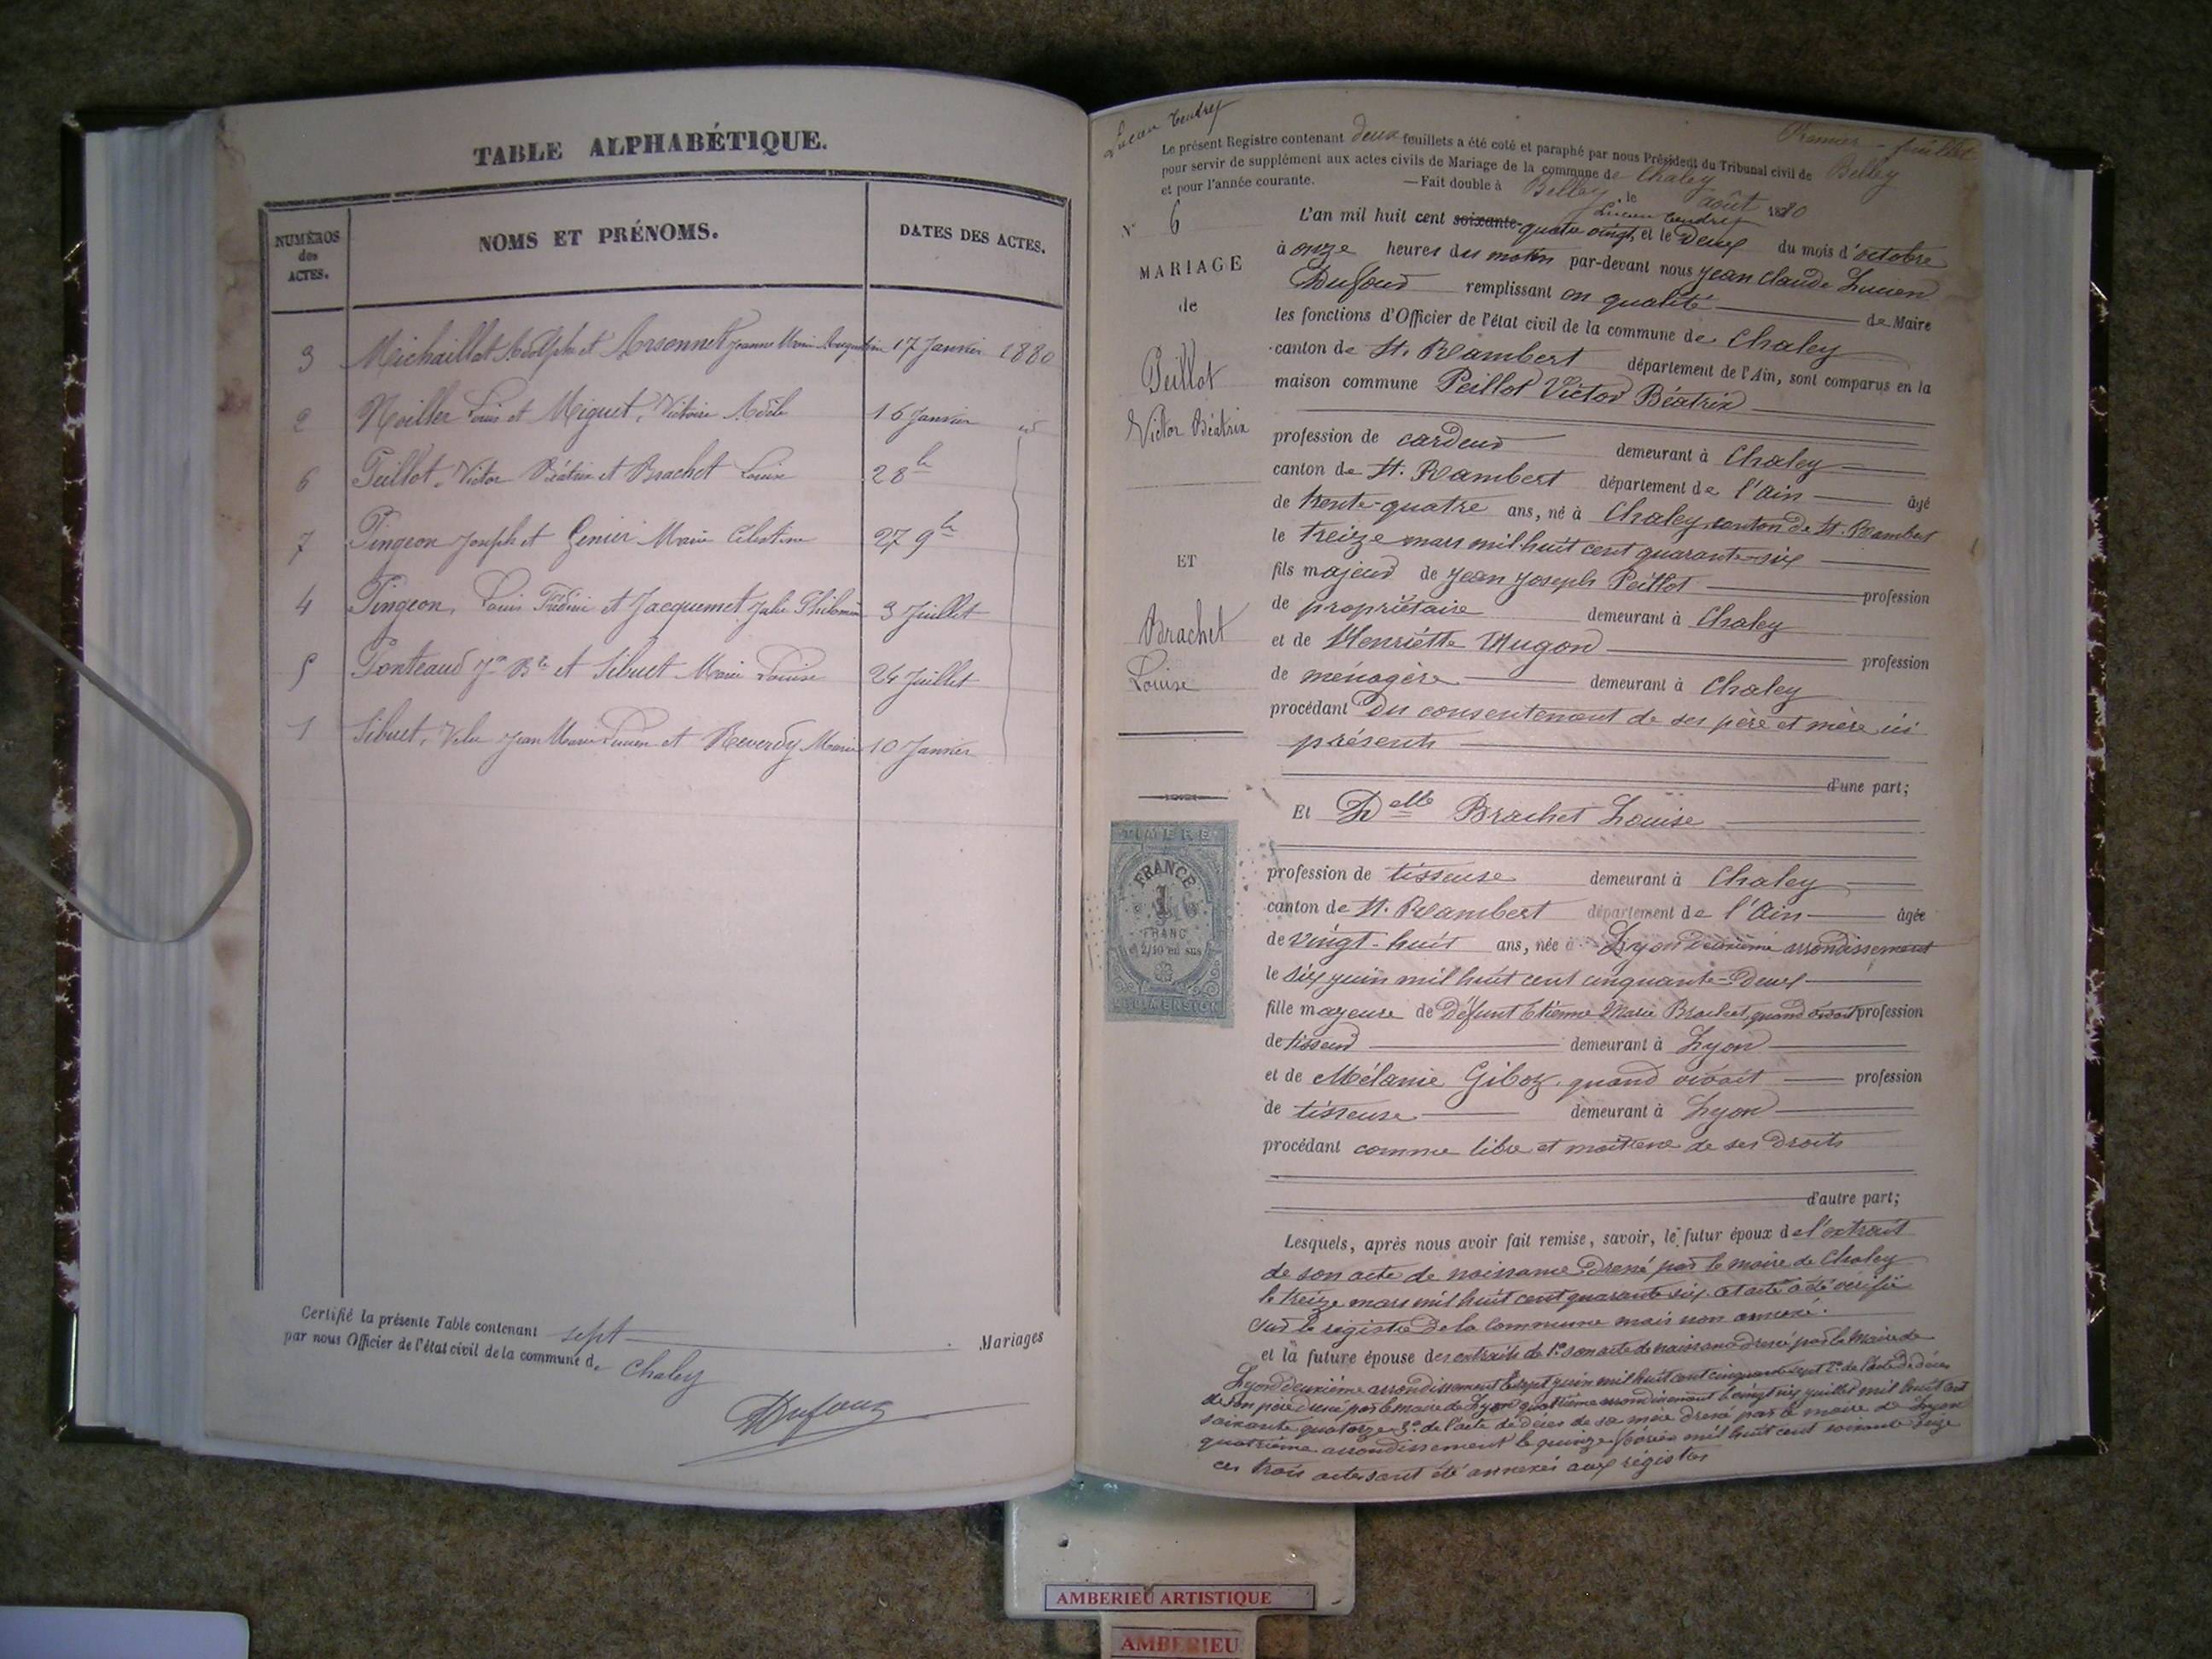 TABLE ALPHABÉTIQUE.
NUMÉROS des ACTES.
NOMS ET PRÉNOMS.
DATES DES ACTES.
3 Michaillat Adolphe et Arsonnet Jeanne Marie 17 Janvier 1880
2 Louis et Miguet, Victoire Adèle 16 Janvier id
6 Peillot, Victor Béatrix et Brachet Louise 2 8bre
7 Pingeon Joseph et Genier Marie Célestine 27 9bre
4 Pingeon, Louis et Jacquemet Julie Philomène 3 Juillet
5 Ponteaud Jn Bte et Sibuet Marie Louise 24 Juillet
1 Sibuet, Jean Marie et Reverdy Marie 10 Janvier
Certifié la présente Table contenant sept Mariages
par nous Officier de l'état civil de la commune de Chaley
Dufour
Premier feuillet
Le présent Registre contenant deux feuillets a été coté et paraphé par nous Président du Tribunal civil de Belley
pour servir de supplément aux actes civils de Mariage de la commune de Chaley
et pour l'année courante. — Fait double à Belley, le août 1880
N° 6
MARIAGE
de
Peillot
Victor Béatrix
ET
Brachet
Louise
L'an mil huit cent soixante quatre vingt, et le deux du mois d'octobre
à onze heures du matin par-devant nous Jean Claude Lucien
Dufour remplissant en qualité de Maire
les fonctions d'Officier de l'état civil de la commune de Chaley
canton de St. Rambert département de l'Ain, sont comparus en la
maison commune Peillot Victor Béatrix
profession de cardeur demeurant à Chaley
canton de St. Rambert département de l'Ain âgé
de trente-quatre ans, né à Chaley, canton de St. Rambert
le treize mars mil huit cent quarante-six
fils majeur de Jean Joseph Peillot profession
de propriétaire demeurant à Chaley
et de Henriette Mugon profession
de ménagère demeurant à Chaley
procédant du consentement de ses père et mère ici
présents
d'une part;
Et Delle Brachet Louise
TIMBRE
FRANCE
1
FRANC
et 2/10 en sus
DIMENSION
profession de tisseuse demeurant à Chaley
canton de St. Rambert département de l'Ain âgée
de vingt-huit ans, née à Lyon deuxième arrondissement
le six juin mil huit cent cinquante-deux
fille mageure de défunt Etienne Marie Brachet, quand vivait profession
de tisseur demeurant à Lyon
et de Mélanie Giboz, quand vivait profession
de tisseuse demeurant à Lyon
procédant comme libre et maîtresse de ses droits
d'autre part;
Lesquels, après nous avoir fait remise, savoir, le futur époux de l'extrait
de son acte de naissance dressé par le maire de Chaley
le treize mars mil huit cent quarante six. et acte a été vérifié
sur le registre de la commune mais non annexé.
et la future épouse des extraits de 1° son acte de naissance dressé par le Maire de
Lyon deuxième arrondissement le sept juin mil huit cent cinquante 2° de l'acte de décès
de son père dressé par le maire de Lyon quatrième arrondissement le vingt six juillet mil huit cent
soixante quatorze 3° de l'acte de décès de sa mère dressé par le maire de Lyon
quatrième arrondissement le quinze février mil huit cent soixante seize
ces trois actes sont été annexés aux registres
AMBERIEU ARTISTIQUE
AMBERIEU